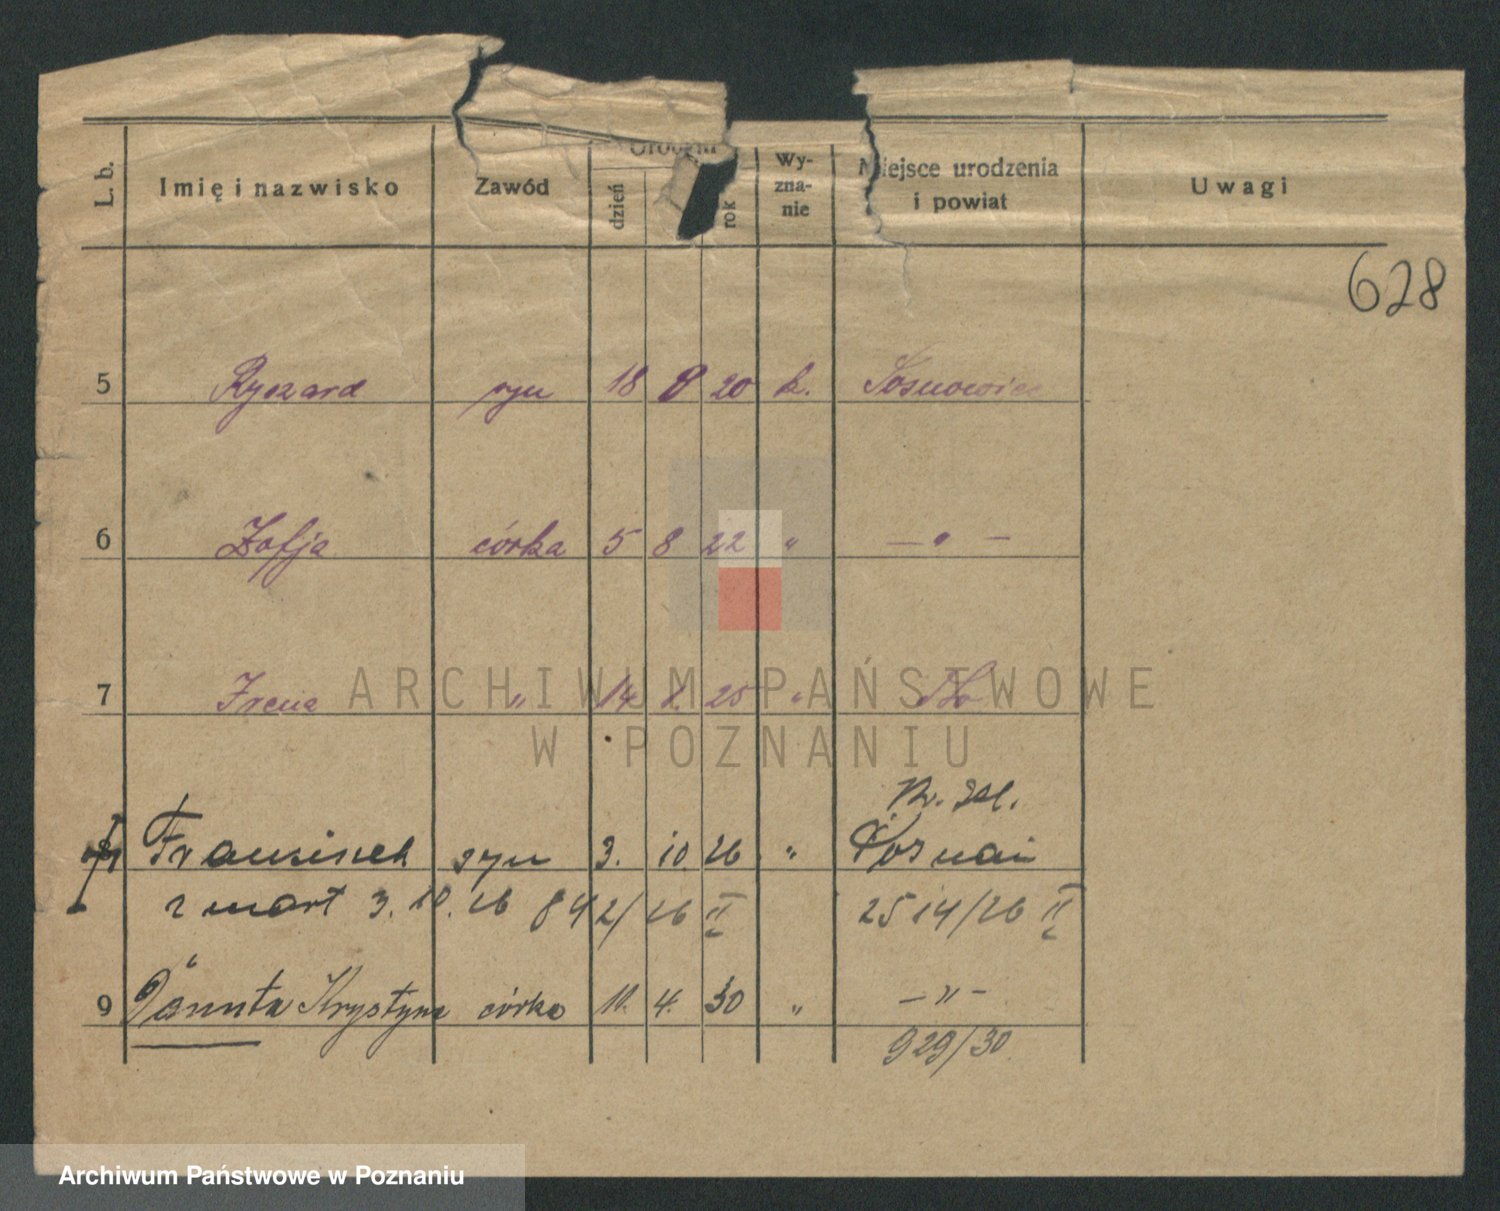 L. b. Imię i nazwisko Zawód dzień rok Wy-zna-nie Miejsce urodzenia i powiat Uwagi
628
5 Ryszard syn 18 8 20 k. Sosnowiec
6 Zofja córka 5 8 22 " — " —
7 Irena " 14 1. 25 "
Franciszek syn 3. 10 26 " Poznań
zmarł 3. 10. 26 842/26 II 2514/26 II
9 Danuta Krystyna córka 11. 4. 30 " — " —
929/30
ARCHIWUM PAŃSTWOWE
W POZNANIU
Archiwum Państwowe w Poznaniu